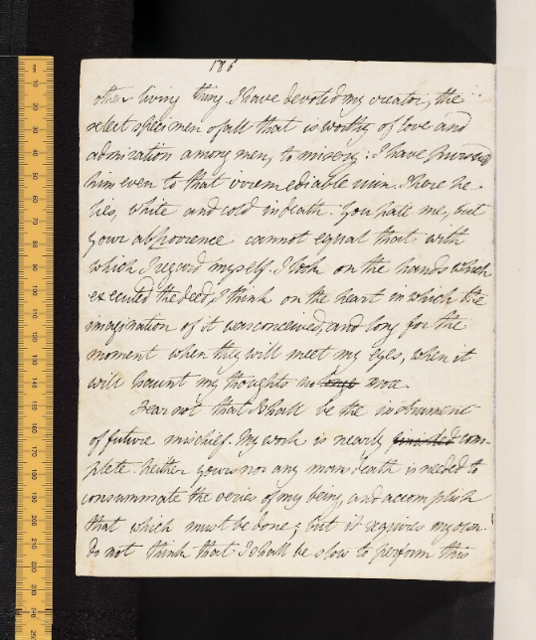 186
other living thing. I have devoted my creator, the
select specimen of all that is worthy of love and
admiration among men, to misery: I have pursued
him even to that irremediable ruin. There he
lies, white and cold in death. You hate me, but
your abhorrence cannot equal that with
which I regard myself. I look on the hands which
executed the deed, I think on the heart in which the
imagination of it was conceived, and long for the
moment when they will meet my eyes, when it
will haunt my thoughts no more.
Fear not that I shall be the instrument
of future mischief. My work is nearly finished com-
plete. Neither yours nor any man death is needed to
consummate the series of my being, and accomplish
that which must be done; but it requires my own.
Do not think that I shall be slow to perform this